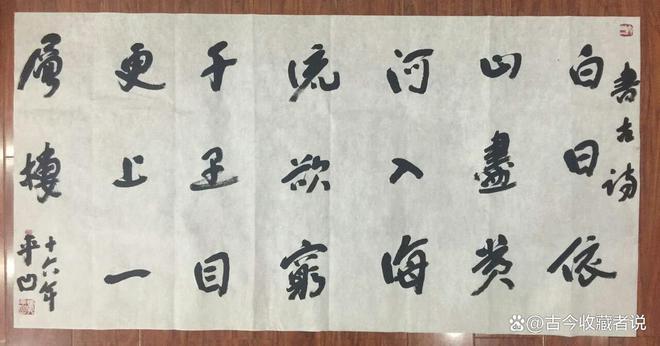 书古诗
白日依
山盡黄
河入海
流欲窮
千里目
更上一
層樓
十六年
平凹
@古今收藏者说